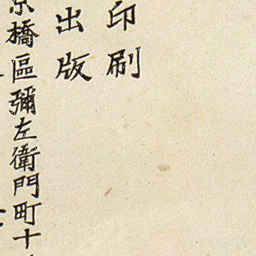 印刷
出版
京橋區彌左衛門町十